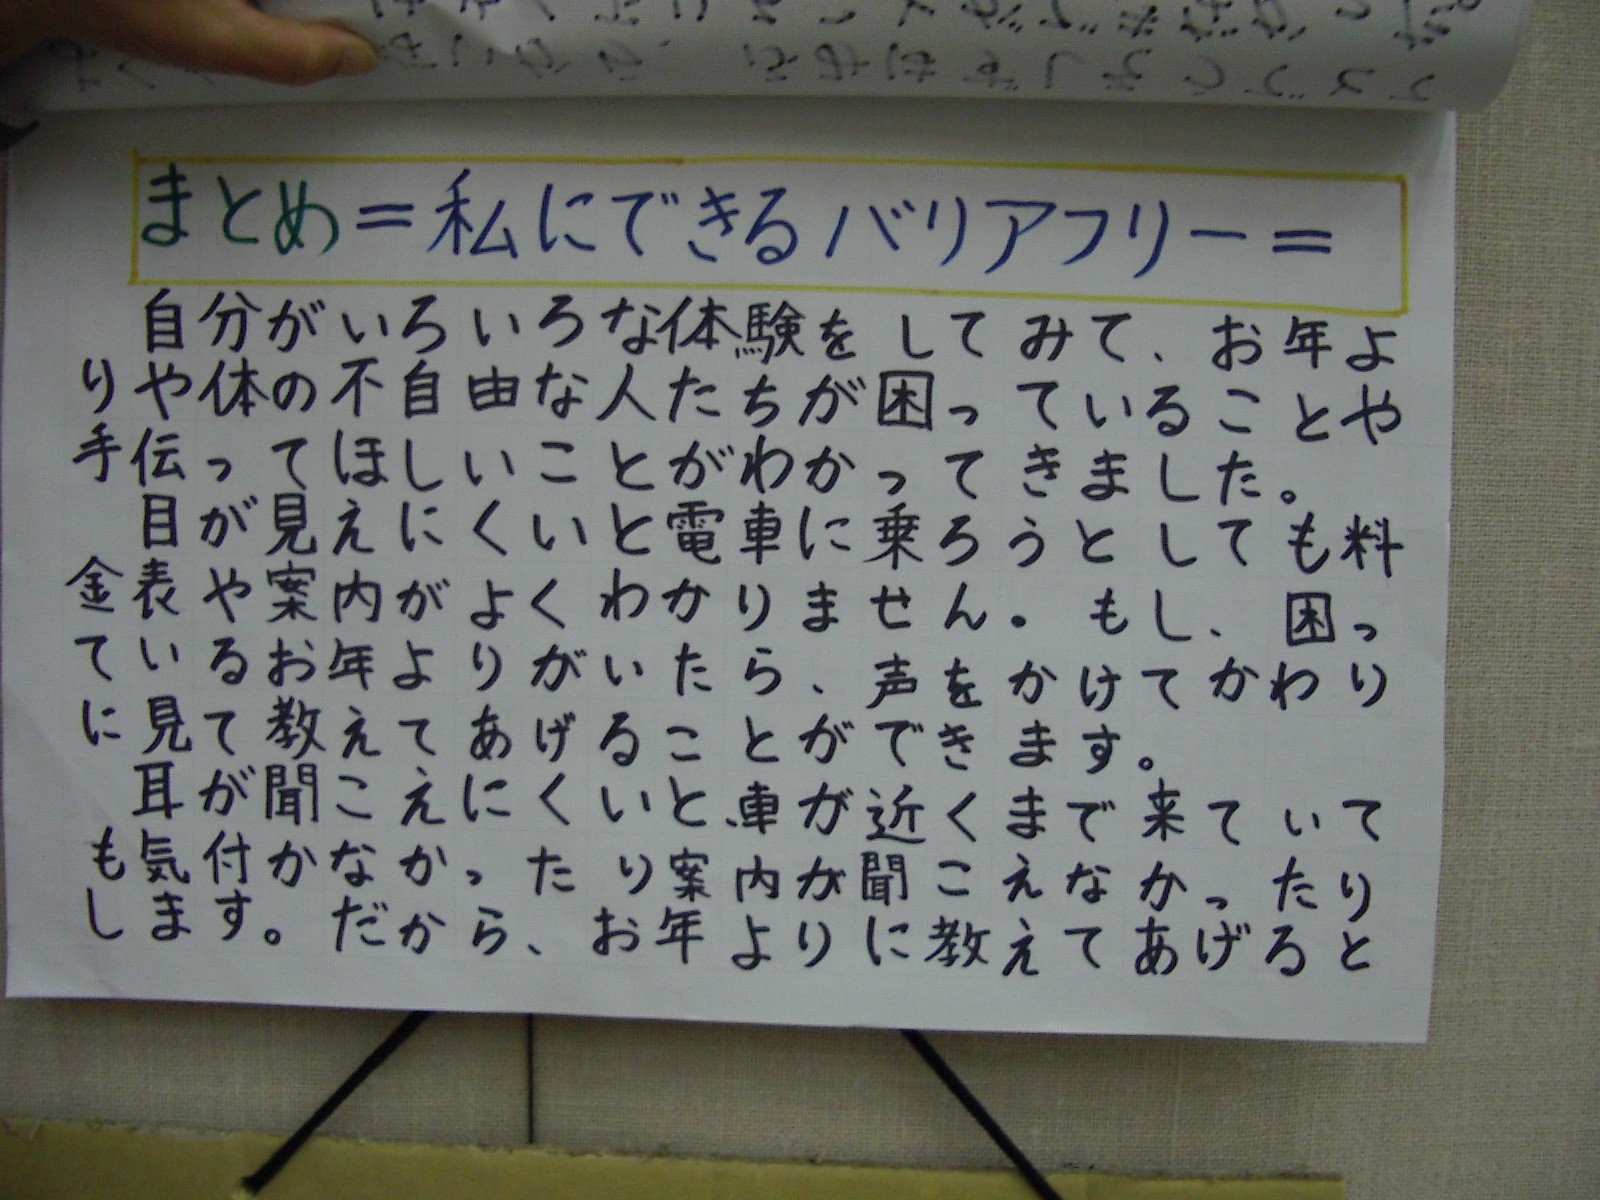 まとめ=私にできるバリアフリー=
自分がいろいろな体験をしてみて、お年よ
りや体の不自由な人たちが困っていることや
手伝ってほしいことがわかってきました。
目が見えにくいと電車に乗ろうとしても料
金表や案内がよくわかりません。もし、困っ
ているお年よりがいたら、声をかけてかわり
に見て教えてあげることができます。
耳が聞こえにくいと、車が近くまで来ていて
も気付かなかったり案内が聞こえなかったり
します。だから、お年よりに教えてあげると